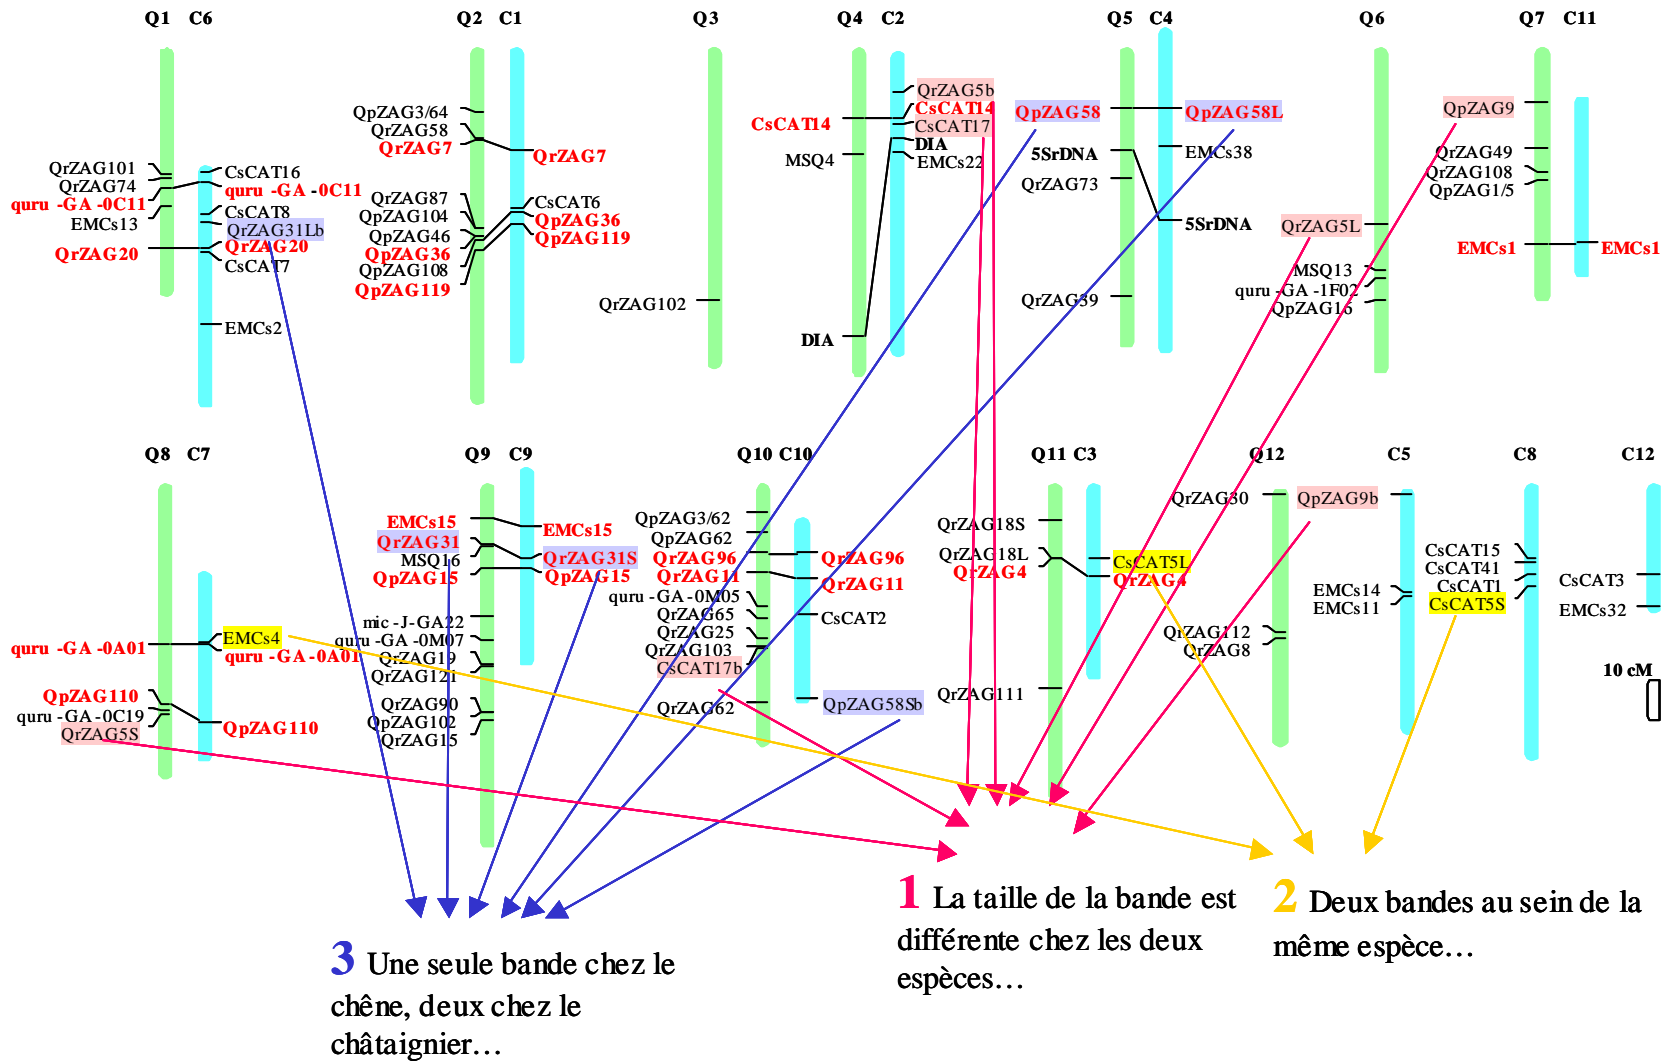 Q1 C6
QrZAG101
QrZAG74
quru -GA -0C11
EMCs13
QrZAG20
CsCAT16
quru -GA -0C11
CsCAT8
QrZAG31Lb
QrZAG20
CsCAT7
EMCs2
Q2 C1
QpZAG3/64
QrZAG58
QrZAG7
QrZAG87
QpZAG104
QpZAG46
QpZAG36
QpZAG108
QpZAG119
QrZAG7
CsCAT6
QpZAG36
QpZAG119
Q3
QrZAG102
Q4 C2
CsCAT14
MSQ4
DIA
QrZAG5b
CsCAT14
CsCAT17
DIA
EMCs22
Q5 C4
QpZAG58
5SrDNA
QrZAG73
QrZAG39
QpZAG58L
EMCs38
5SrDNA
Q6
QrZAG5L
MSQ13
quru -GA -1F02
QpZAG16
Q7 C11
QpZAG9
QrZAG49
QrZAG108
QpZAG1/5
EMCs1
EMCs1
Q8 C7
quru -GA -0A01
QpZAG110
quru -GA -0C19
QrZAG5S
EMCs4
quru -GA -0A01
QpZAG110
Q9 C9
EMCs15
QrZAG31
MSQ16
QpZAG15
mic -J-GA22
quru -GA -0M07
QrZAG19
QrZAG121
QrZAG90
QpZAG102
QrZAG15
EMCs15
QrZAG31S
QpZAG15
Q10 C10
QpZAG3/62
QpZAG62
QrZAG96
QrZAG11
quru -GA -0M05
QrZAG65
QrZAG25
QrZAG103
CsCAT17b
QrZAG62
QrZAG96
QrZAG11
CsCAT2
QpZAG58Sb
Q11 C3
QrZAG18S
QrZAG18L
QrZAG4
QrZAG111
CsCAT5L
QrZAG4
Q12
QrZAG30
QrZAG112
QrZAG8
C5
QpZAG9b
EMCs14
EMCs11
C8
CsCAT15
CsCAT41
CsCAT1
CsCAT5S
C12
CsCAT3
EMCs32
10 cM
1 La taille de la bande est
différente chez les deux
espèces…
2 Deux bandes au sein de la
même espèce…
3 Une seule bande chez le
chêne, deux chez le
châtaignier…